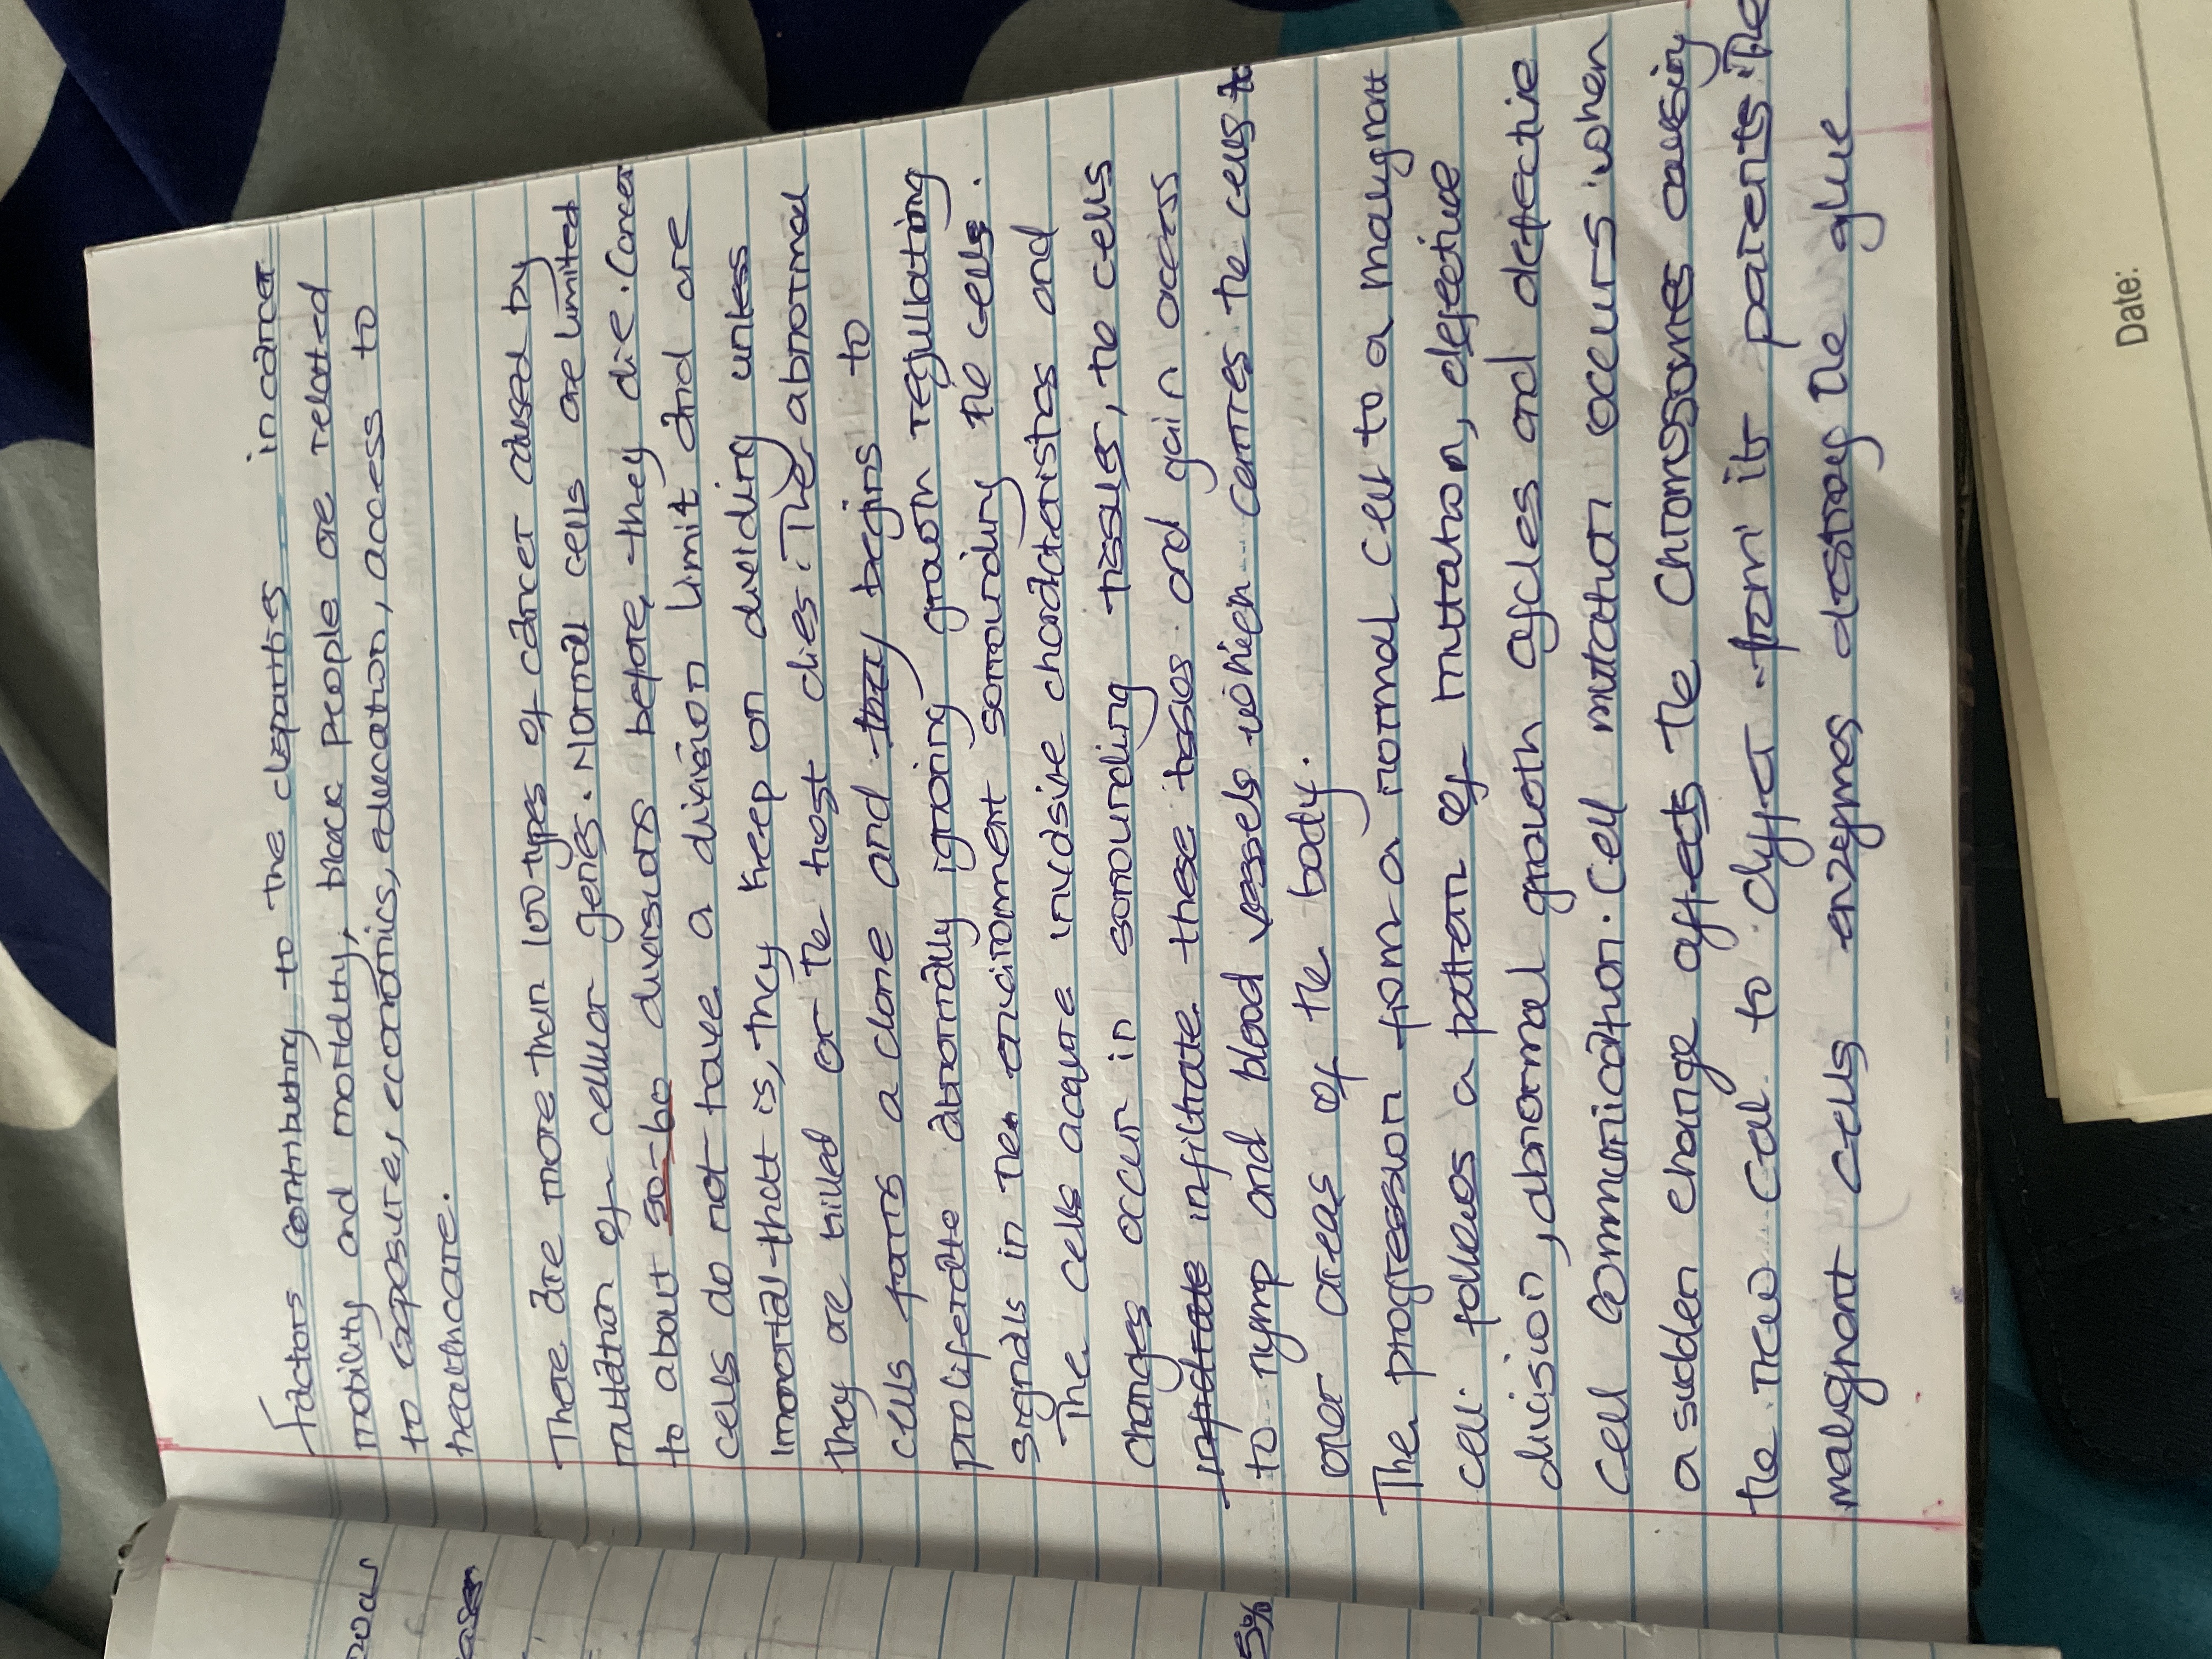 Factors contributing to the disparities in cancer
mobility and mortality, black people are related
to exposure, economics, education, access to
healthcare.
There are more than 100 types of cancer caused by
mutation of cellular genes. Normal cells are limited
to about 50-60 divisions before they die. Cancer
cells do not have a division limit and are
immortal that is, they keep on dividing unless
they are killed or the host dies. The abnormal
cells forms a clone and they begins to
proliferate abnormally ignoring growth regulating
signals in the environment sorrounding the cells.
The cells acquire invasive characteristics and
changes occur in sorrounding tissues, the cells
infiltrate these tissues and gain access
to nymp and blood vessels which carries the cells to
other areas of the body.
The progression from a normal cell to a malignant
cell follows a pattern of mutation, defective
division, abnormal growth cycles and defective
cell communication. Cell mutation occurs when
a sudden change affects the chromosomes causing
the new cell to differ from its parents. The
malignant cells enzymes destroy the glue
5%
Date: